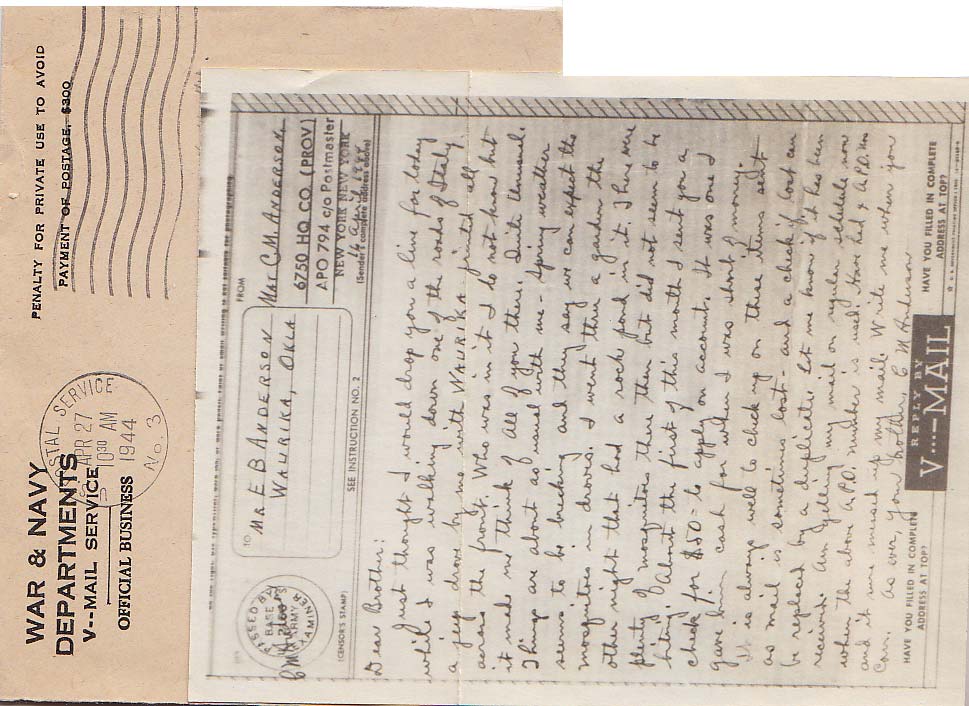 WAR & NAVY
DEPARTMENTS
V--MAIL SERVICE
OFFICIAL BUSINESS
PENALTY FOR PRIVATE USE TO AVOID
PAYMENT OF POSTAGE, $300
POSTAL SERVICE
APR 27
1030 AM
1944
No. 3
PASSED BY
BASE
ARMY EXAMINER
(CENSOR'S STAMP)
TO
MR E B ANDERSON
WAURIKA, OKLA
SEE INSTRUCTION NO. 2
FROM
Maj C. M. ANDERSON,
6750 HQ CO. (PROV)
APO 794 c/o Postmaster
NEW YORK NEW YORK
(Sender's complete address above)
Dear Brother:
Just thought I would drop you a line for today
while I was walking down one of the roads of Italy
a jeep drove by me with WAURIKA printed all
across the front. Who was in it I do not know but
it made me think of all of you there. Quite unusual.
Things are about as usual with me - Spring weather
seems to be breaking and they say we can expect the
mosquitoes in droves. I went thru a garden the
other night that had a rock pond in it. There were
plenty of mosquitoes there then but did not seem to be
biting. About the first of this month I sent you a
check for $50= to apply on account. It was one I
gave him cash for when I was short of money.
It is always well to check up on these items sent
as mail is sometimes lost - and a check if lost can
be replaced by a duplicate. Let me know if it has been
received. Am getting my mail on regular schedule now
when the above A.P.O. number is used. Have had 4 A.P.O. nos
and it sure mused up my mail. Write me when you
can. As ever, your brother, C M Anderson
HAVE YOU FILLED IN COMPLETE
ADDRESS AT TOP?
REPLY BY
V···—MAIL
HAVE YOU FILLED IN COMPLETE
ADDRESS AT TOP?